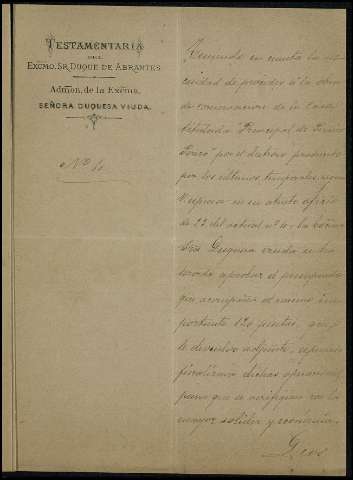 TESTAMENTARÍA
DEL
EXCMO. SR. DUQUE DE ABRANTES
Admón. de la Excma.
SEÑORA DUQUESA VIUDA.
Nº 10
Teniendo en cuenta la ne-
cesidad de proceder a la obra
de conservacion de la Casa
titulada "Principal de
por el deterioro producido
por los ultimos temporales, segun
V. expresa en su atento oficio
de 22 del actual nº 10 la Excma
Sra Duquesa viuda
aprobar el presupuesto
que acompaña al mismo im-
portante 120 pesetas, que
le devuelvo adjunto,
dichas
para que se verifiquen con la
mayor solidez y economia.
Dios